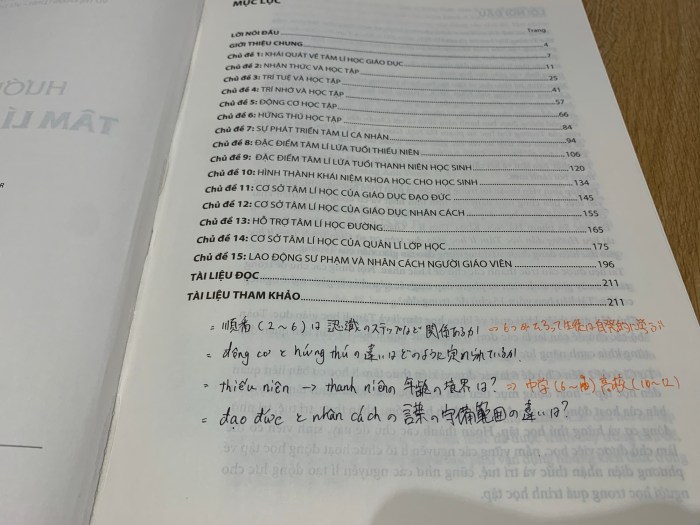 MỤC LỤC
Trang
LỜI NÓI ĐẦU
GIỚI THIỆU CHUNG 4
Chủ đề 1: KHÁI QUÁT VỀ TÂM LÍ HỌC GIÁO DỤC 7
Chủ đề 2: NHẬN THỨC VÀ HỌC TẬP 11
Chủ đề 3: TRÍ TUỆ VÀ HỌC TẬP 25
Chủ đề 4: TRÍ NHỚ VÀ HỌC TẬP 41
Chủ đề 5: ĐỘNG CƠ HỌC TẬP 57
Chủ đề 6: HỨNG THÚ HỌC TẬP 66
Chủ đề 7: SỰ PHÁT TRIỂN TÂM LÍ CÁ NHÂN 84
Chủ đề 8: ĐẶC ĐIỂM TÂM LÍ LỨA TUỔI THIẾU NIÊN 94
Chủ đề 9: ĐẶC ĐIỂM TÂM LÍ LỨA TUỔI THANH NIÊN HỌC SINH 106
Chủ đề 10: HÌNH THÀNH KHÁI NIỆM KHOA HỌC CHO HỌC SINH 120
Chủ đề 11: CƠ SỞ TÂM LÍ HỌC CỦA GIÁO DỤC ĐẠO ĐỨC 134
Chủ đề 12: CƠ SỞ TÂM LÍ HỌC CỦA GIÁO DỤC NHÂN CÁCH 145
Chủ đề 13: HỖ TRỢ TÂM LÍ HỌC ĐƯỜNG 155
Chủ đề 14: CƠ SỞ TÂM LÍ HỌC CỦA QUẢN LÍ LỚP HỌC 165
Chủ đề 15: LAO ĐỘNG SƯ PHẠM VÀ NHÂN CÁCH NGƯỜI GIÁO VIÊN 175
TÀI LIỆU ĐỌC 196
TÀI LIỆU THAM KHẢO 211
211
順番(2~6)は認識のステップなど関係あるか
động cơ と hứng thú の違いはどのように定められているか.
thiếu niên → thanh niên の年齢の境界は? ⇒ 中学(6~ 高校(10~12)
đạo đức と nhân cách の言葉の守備範囲の違いは?